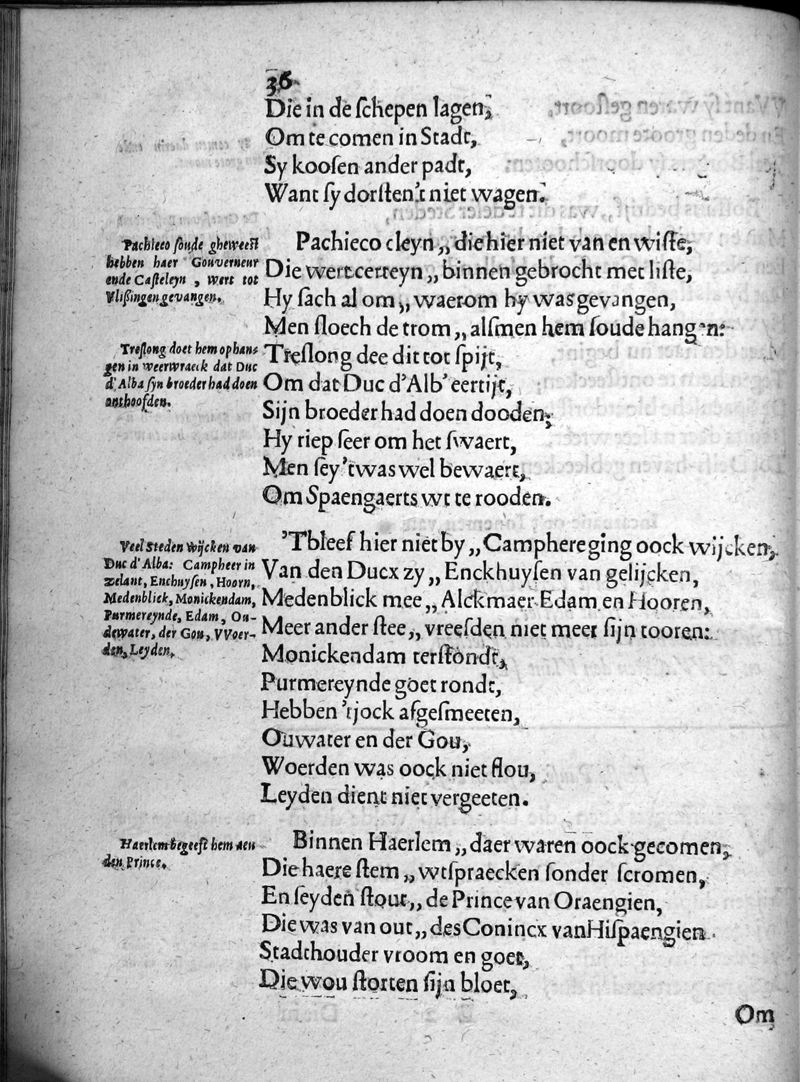 36
Die in de ſchepen lagen,
Om te comen in Stadt,
Sy kooſen ander padt,
Want ſy dorſten't niet wagen.
Pachieco ſoude gheweeſt
hebben haer Gouverneur
ende Caſteleyn, wert tot
Vliſsingen gevangen.
Pachieco cleyn,, die hier niet van en wiſte,
Die wert certeyn,, binnen gebrocht met liſte,
Hy ſach al om,, waerom hy was gevangen,
Men ſloech de trom,, alſmen hem ſoude hangen:
Treſlong doet hem ophan-
gen in weerwraeck dat Duc
d'Alba ſyn broeder had doen
onthoofden.
Treſlong dee dit tot ſpijt,
Om dat Duc d'Alb' eertijt,
Sijn broeder had doen dooden,
Hy riep ſeer om het ſwaert,
Men ſey 'twas wel bewaert,
Om Spaengaerts wt te rooden.
Veel Steden wijcken van
Duc d'Alba: Campheer in
Zelant, Enchuyſen, Hoorn,
Medenblick, Monickendam,
Purmereynde, Edam, Ou-
dewater, der Gou, VVoer-
den, Leyden.
'Tbleef hier niet by,, Camphere ging oock wijcken,
Van den Ducx zy,, Enckhuyſen van gelijcken,
Medenblick mee,, Alckmaer Edam en Hooren,
Meer ander ſtee,, vreeſden niet meer ſijn tooren:
Monickendam terſtondt,
Purmereynde goet rondt,
Hebben 'tjock afgeſmeeten,
Ouwater en der Gou,
Woerden was oock niet flou,
Leyden dient niet vergeeten.
Haerlem begeeft hem aen
den Prince.
Binnen Haerlem,, daer waren oock gecomen,
Die haere ſtem,, wtſpraecken ſonder ſcromen,
En ſeyden ſtout,, de Prince van Oraengien,
Die was van out,, des Conincx van Hiſpaengien
Stadthouder vroom en goet,
Die wou ſtorten ſijn bloet,
Om